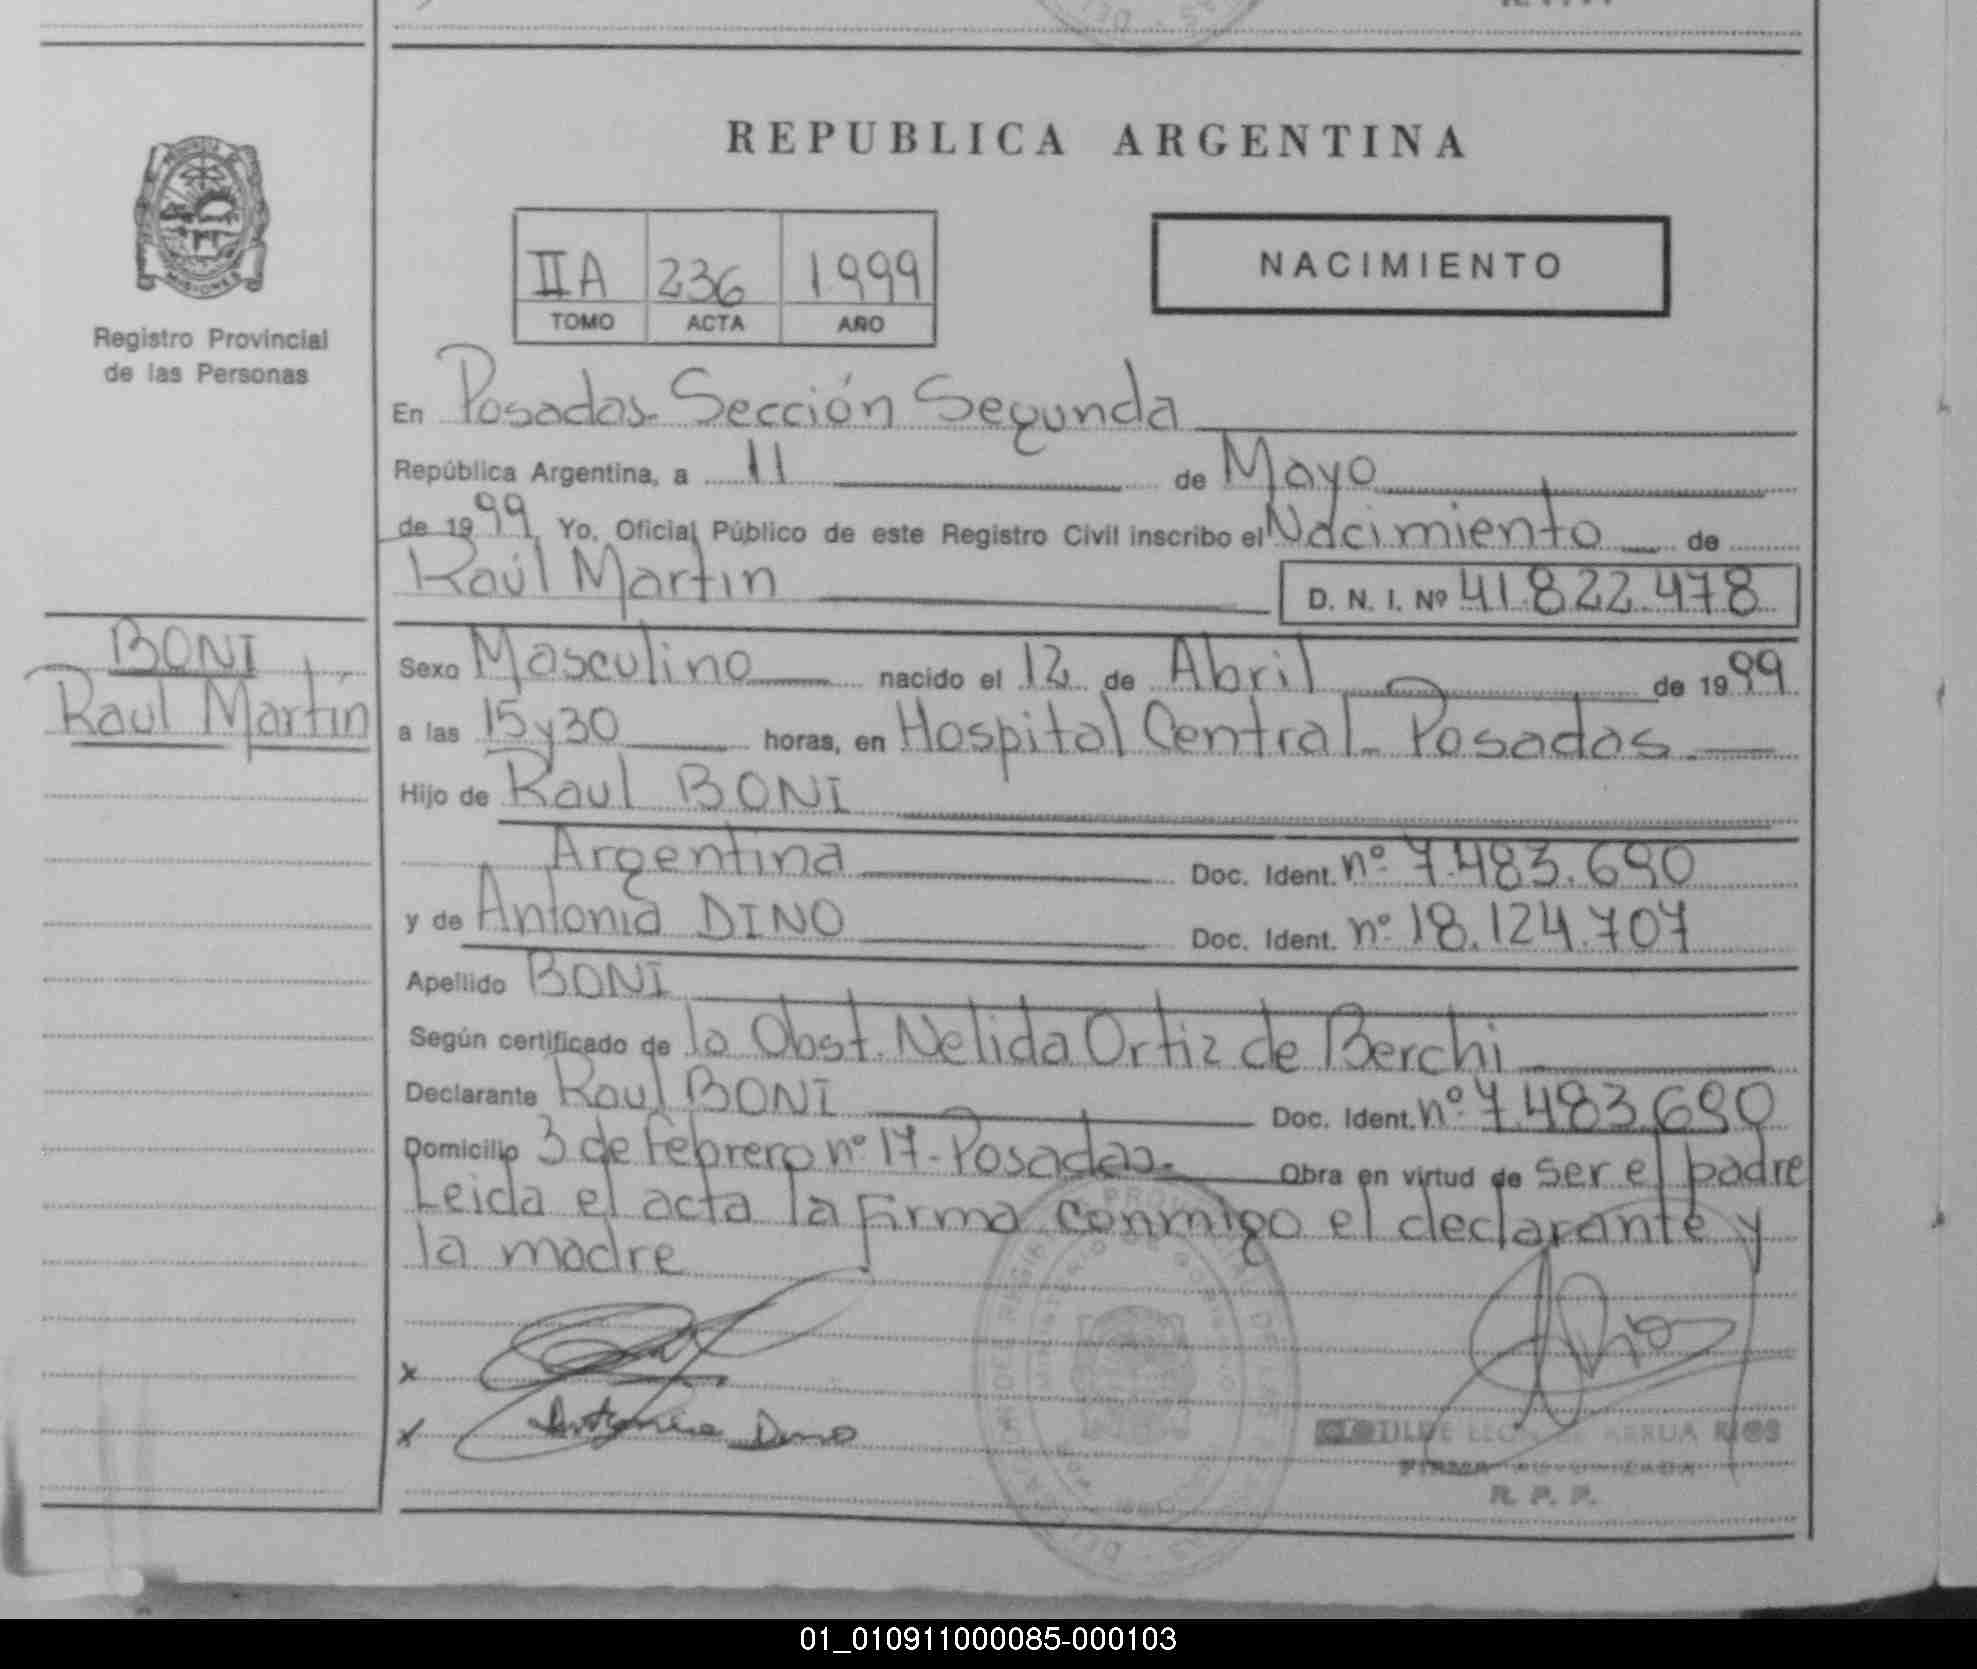 REPUBLICA ARGENTINA
PROVINCIA DE
MISIONES
Registro Provincial
de las Personas
IIA 236 1999
TOMO ACTA AÑO
NACIMIENTO
En Posadas. Sección Segunda
República Argentina, a 11 de Mayo
de 1999 Yo, Oficial Público de este Registro Civil inscribo el Nacimiento de
Raúl Martín D. N. I. Nº 41.822.478
BONI
Raul Martín
Sexo Masculino nacido el 12 de Abril de 1999
a las 15 y 30 horas, en Hospital Central - Posadas
Hijo de Raul BONI
Argentina Doc. Ident. nº 7.483.690
y de Antonia DINO Doc. Ident. nº 18.124.707
Apellido BONI
Según certificado de la Obst. Nelida Ortiz de Berchi
Declarante Raul BONI Doc. Ident. nº 7.483.690
Domicilio 3 de Febrero nº 17 - Posadas. Obra en virtud de ser el padre
Leida el acta la firma conmigo el declarante y
la madre
x
x Antonia Dino
CLOTILDE ARRUA RIOS
FIRMA AUTORIZADA
R. P. P.
01_010911000085-000103